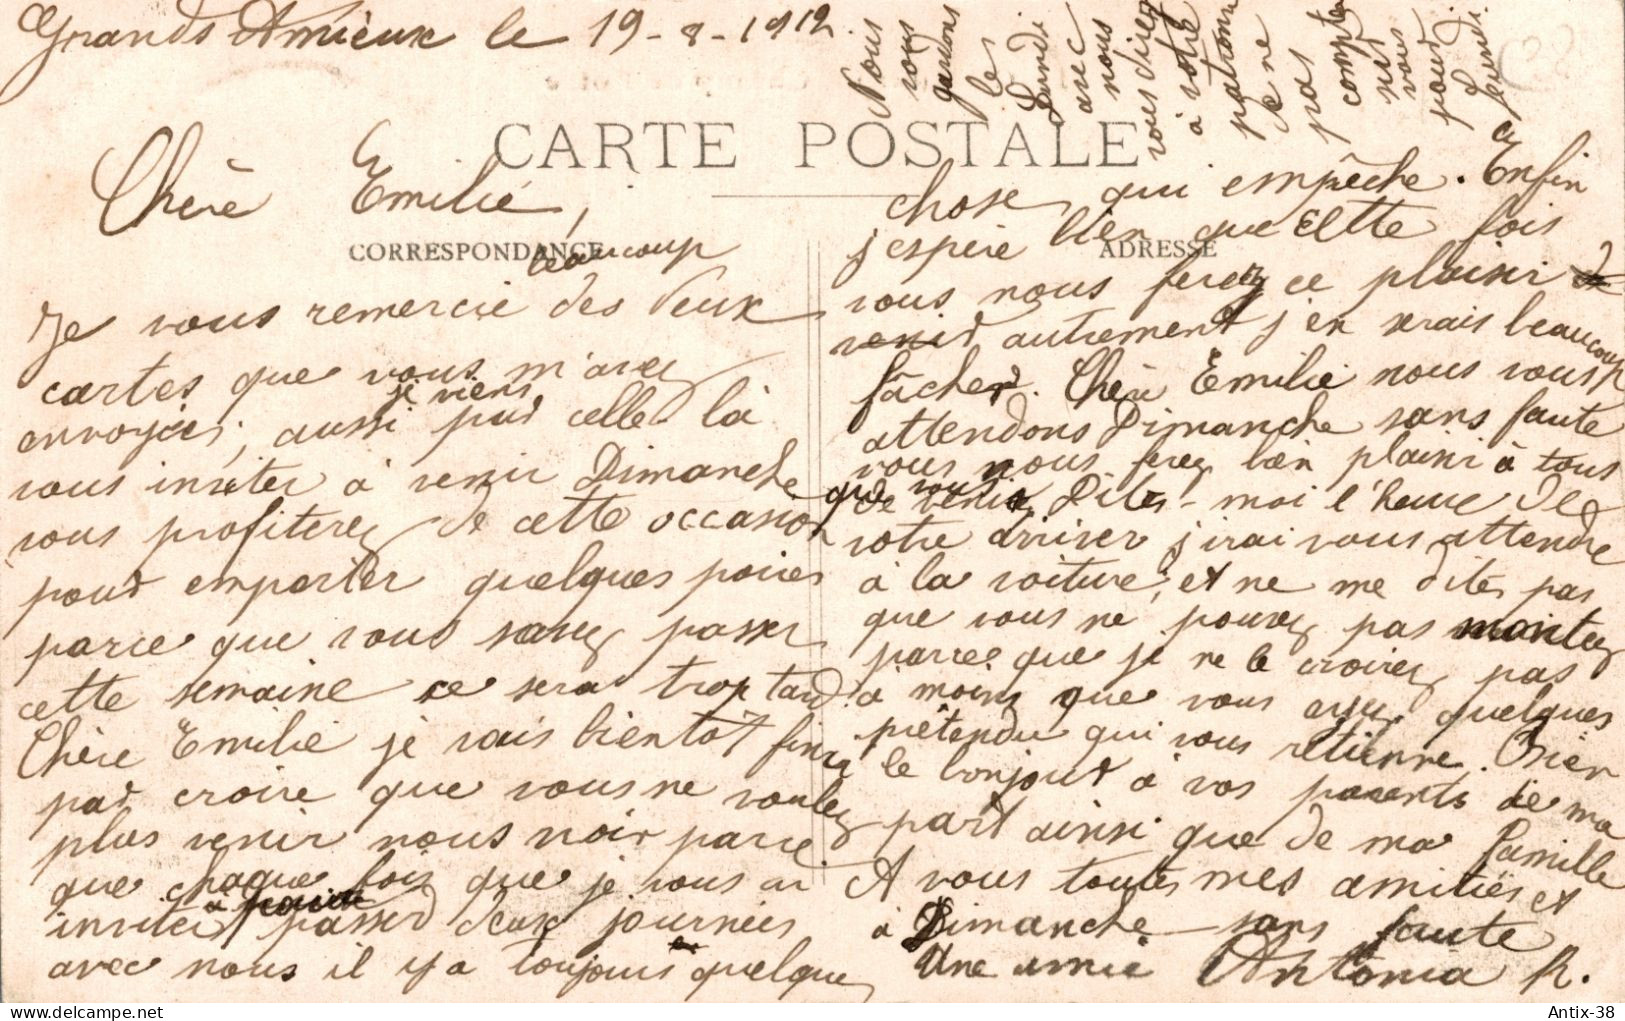 Grands Amieux le 19-8-1912.
CARTE POSTALE
CORRESPONDANCE
ADRESSE
Chère Emilie,
beaucoup
Je vous remercie des deux
cartes que vous m'avez
je viens
envoyées, aussi par celle là
vous inviter à venir Dimanche
vous profiterez de cette occasion
pour emporter quelques poires
parce que vous savez passer
cette semaine ce sera trop tard.
Chère Emilie je vais bientôt finir
par croire que vous ne voulez
plus venir nous voir parce
que chaque fois que je vous ai
inviter à passer deux journées
avec nous il y a toujours quelque
chose qui empêche. Enfin
j'espère bien que cette fois
vous nous ferez ce plaisir de
venir autrement j'en serais beaucoup
fâcher. Chère Emilie nous vous
attendons Dimanche sans faute
vous nous ferez bien plaisir à tous
que vous veniez Dites-moi l'heure de
votre arriver j'irai vous attendre
à la voiture, et ne me dites pas
que vous ne pouvez pas montez
parce que je ne le croirez pas
à moins que vous ayez quelques
prétendu qui vous retienne. Bien
le bonjour à vos parents de ma
part ainsi que de ma famille
A vous toutes mes amitiés et
à Dimanche sans faute
Une amie Antonia R.
Nous
vous
gardons
le
Lundi
avec
nous
vous direz
à votre
patronne
de ne
pas
compter
sur
vous
pour
Lundi.
Antix-38